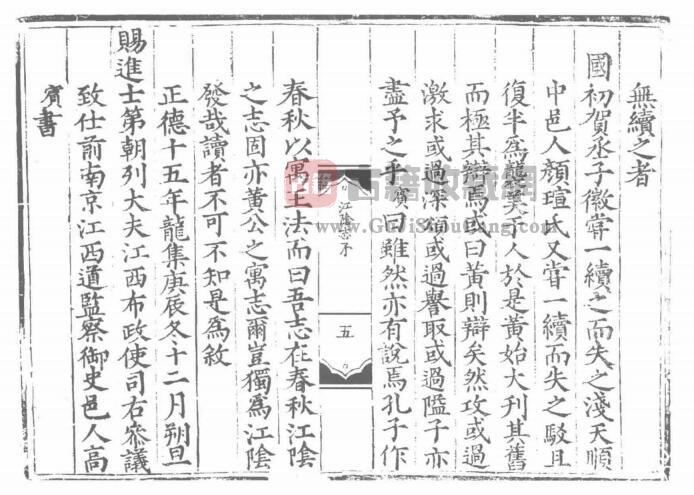 無續之者
國初賀丞子徽甞一續之而失之淺天順
中邑人顏瑄氏又甞一續而失之駁且
復半為人於是黃始大刊其舊
而極其辯焉或曰黃則辯矣然攻或過
激求或過深頌或過譽取或過隘子亦
盡予之乎賓曰雖然亦有說焉孔子作
江陰志序
五
春秋以寓王法而曰吾志在春秋江陰
之志固亦黃公之寓志爾豈獨為江陰
發哉讀者不可不知是為敘
正德十五年龍集庚辰冬十二月朔旦
賜進士第朝列大夫江西布政使司右叅議
致仕前南京江西道監察御史邑人高
賓書
古籍收藏網
www.GuJiShouCang.com